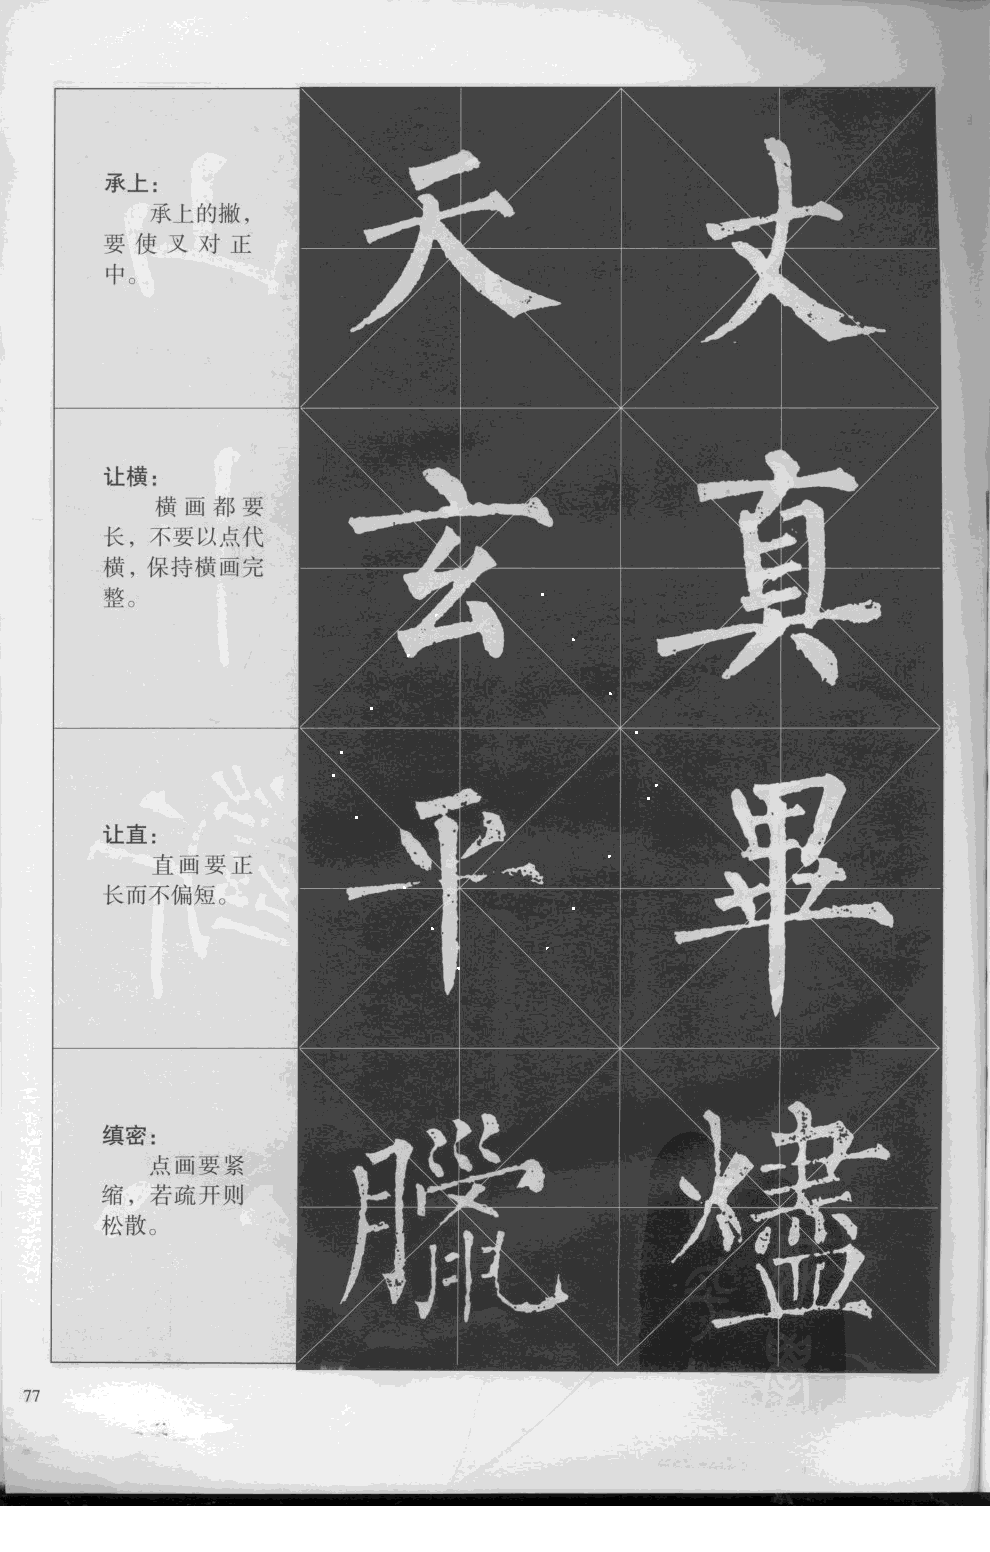 承上：
承上的撇，
要使叉对正
中。
天 丈
让横：
横画都要
长，不要以点代
横，保持横画完
整。
玄 真
让直：
直画要正
长而不偏短。
平 畢
缜密：
点画要紧
缩，若疏开则
松散。
臘 燼
77